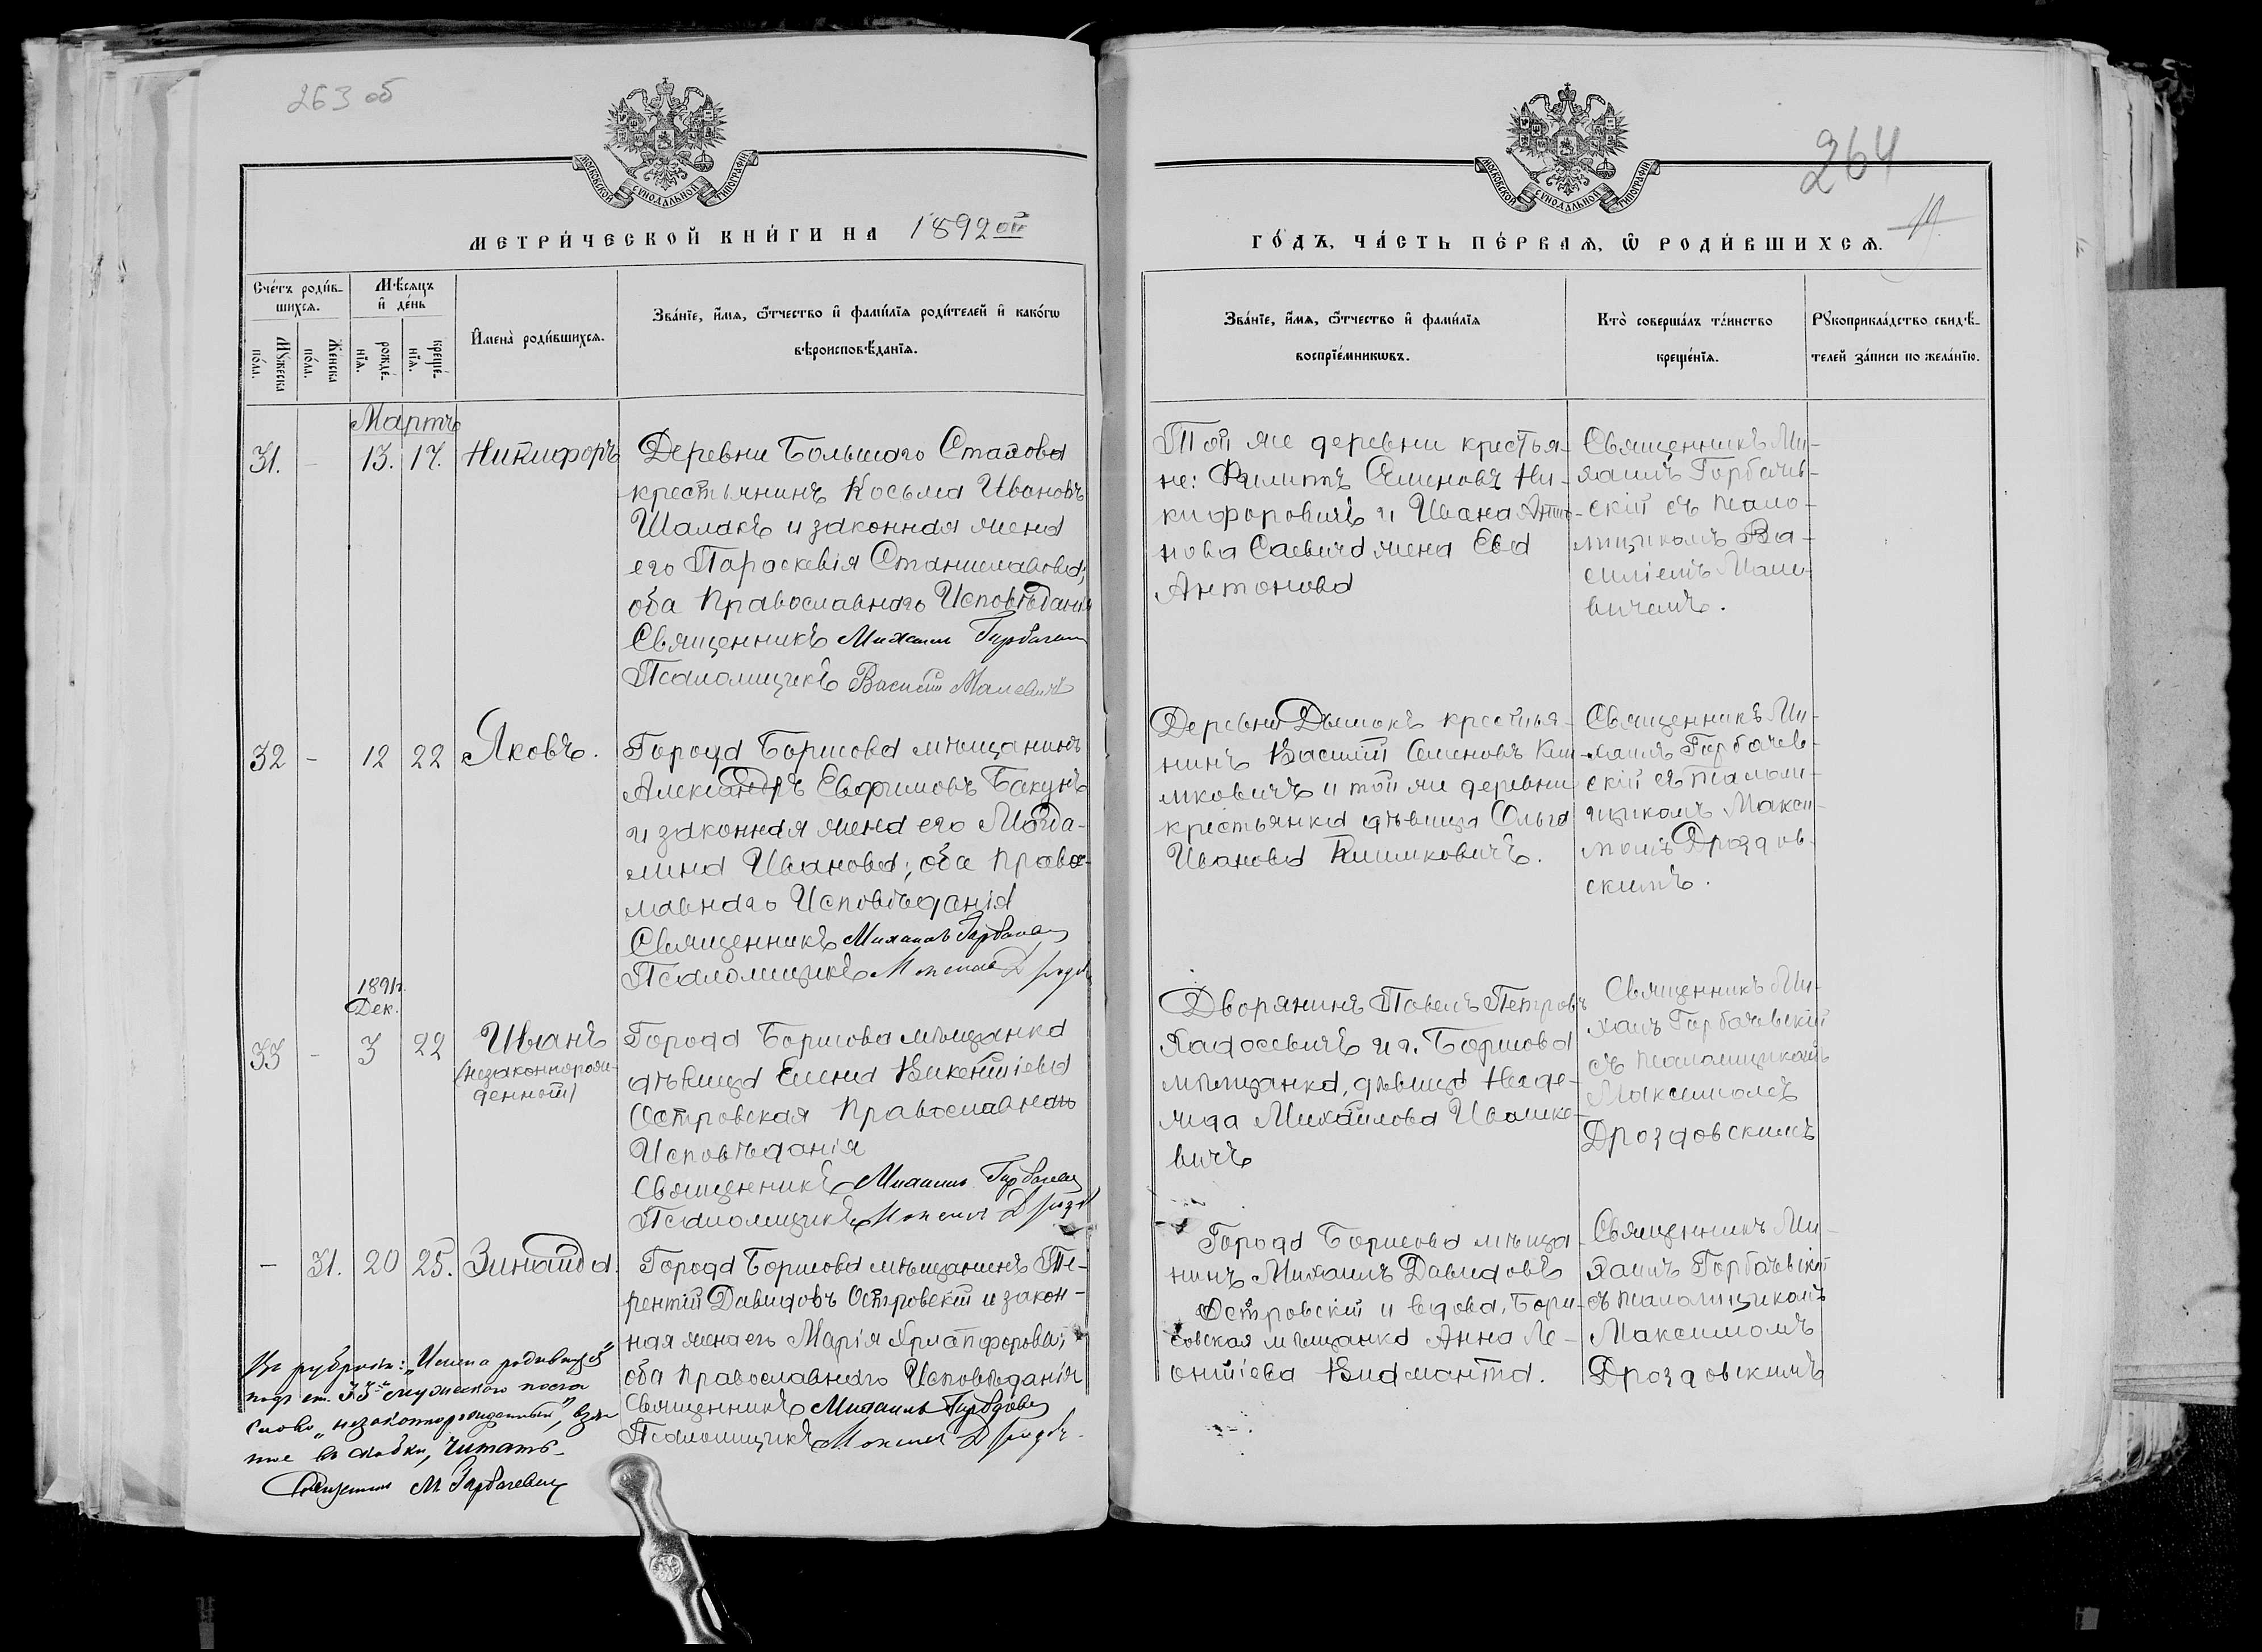 263 об
МОСКОВСКОЙ СУНОДАЛЬНОЙ ТИПОГРАФІИ
МЕТРИ́ЧЕСКОЙ КНИ́ГИ НА 1892ой
Сче́тъ роди́в-
шихся.
Мѣ́сяцъ
и҆ де́нь
Мꙋжеска
по́ла.
Женска
по́ла.
рожде́-
нїя.
креще́-
нїя.
И҆мена̀ роди́вшихся.
Зва́нїе, и҆́мя, ѻ҆́тчество и҆ фами́лїя роди́телей и҆ како́гѡ
вѣроисповѣ́данїя.
Мартъ
31. - 13. 17. Никифоръ
Деревни Большаго Стахова
крестьянинъ Косьма Ивановъ
Шалакъ и законная жена
его Параскевія Станиславова;
оба Православнаго Исповѣданія
Священникъ Михаилъ Горбачев
Псаломщикъ Василій Малевичъ
32 - 12 22 Яковъ.
Города Борисова мѣщанинъ
Александръ Евфимовъ Бакунъ
и законная жена его Магда-
лина Иванова; оба Правос-
лавнаго Исповѣданія
Священникъ Михаилъ Горбачев
Псаломщикъ Максимъ Дроздо
1891г.
Дек.
33 - 3 22 Иванъ
(незаконнорож-
денный)
Города Борисова мѣщанка
дѣвица Елена Викентіева
Островская Православнаго
Исповѣданія
Священникъ Михаилъ Горбачев
Псаломщикъ Максимъ Дрозд
- 31. 20 25. Зинаида.
Города Борисова мѣщанинъ Те-
рентій Давидовъ Островскій и закон-
ная жена его Марія Христофорова;
оба Православнаго Исповѣданія
Священникъ Михаилъ Горбачев
Псаломщикъ Максимъ Дроздов
Въ рубрикѣ: „Имена родившихся"
подъ ст. 33й мужескаго пола
слово „незаконнорожденный", взя-
тое въ скобки, читать.
Священникъ М. Горбачевскій
264
19
МОСКОВСКОЙ СУНОДАЛЬНОЙ ТИПОГРАФІИ
ГО́ДЪ, ЧА́СТЬ ПЕ́РВАЯ, Ѡ҆ РОДИ́ВШИХСЯ.
Зва́нїе, и҆́мя, ѻ҆́тчество и҆ фами́лїя
воспрїе́мникѡвъ.
Кто̀ соверша́лъ та́инство
креще́нїя.
Рꙋкоприкла́дство свидѣ́-
телей за́писи по жела́нїю.
Той же деревни крестья-
не: Филиппъ Семеновъ Ни-
кифоровичъ и Ивана Анто-
нова Саевича жена Ева
Антонова
Священникъ Ми-
хаилъ Горбачев-
скій съ псало-
мщикомъ Ва-
силіемъ Мале-
вичемъ.
Деревни Дымокъ крестья-
нинъ Василій Семеновъ Ким-
мковичъ и той же деревни
крестьянка дѣвица Ольга
Иванова Климковичъ.
Священникъ Ми-
хаилъ Горбачев-
скій съ псалом-
щикомъ Макси-
момъ Дроздов-
скимъ.
Дворянинъ Павелъ Петровъ
Хадосевичъ и г. Борисова
мѣщанка, дѣвица Наде-
жда Михайлова Ивашке-
вичъ
Священникъ Ми-
хаилъ Горбачевскій
съ псаломщикомъ
Максимомъ
Дроздовскимъ
Города Борисова мѣща-
нинъ Михаилъ Давидовъ
Островскій и вдова, Бори-
совская мѣщанка Анна Ле-
онтіева Видманта.
Священникъ Ми-
хаилъ Горбачевскій
съ псаломщикомъ
Максимомъ
Дроздовскимъ